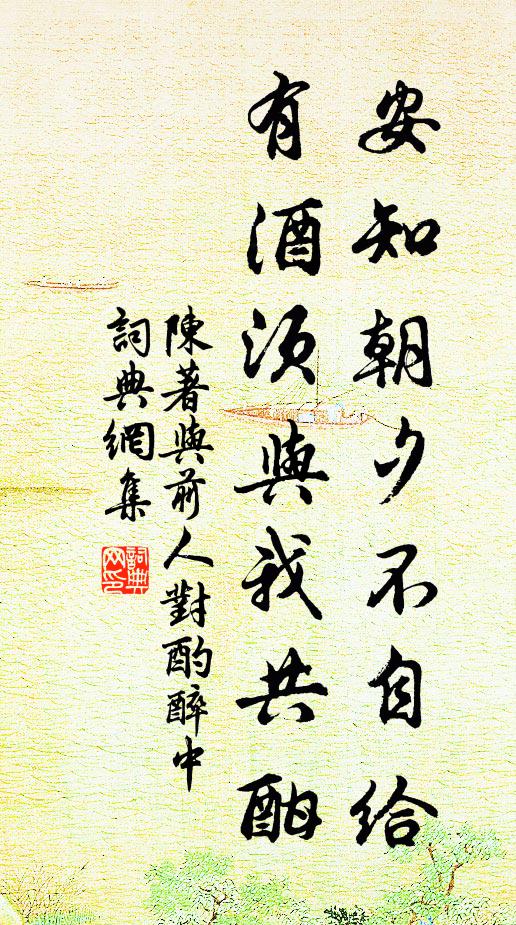 安知朝夕不自給
有酒須與我共酣
陳著與前人對酌醉中
詞典網集
詞典网印